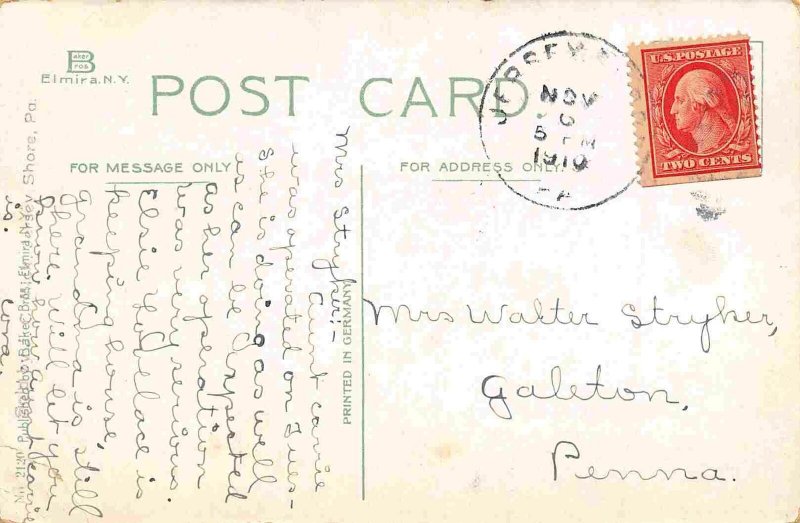 Baker
Bros
Elmira, N.Y.
POST CARD
FOR MESSAGE ONLY
FOR ADDRESS ONLY.
JERSEY S
NOV
5 PM
1910
PA
U.S. POSTAGE
TWO CENTS
Mrs Stryker:-
Aunt Carrie
was operated on Tues-
She is doing as well
as can be expected
as her operation
was very serious.
Elsie Lovelace is
keeping house,
grandma is still
there. Will let you
know how Aunt Carrie
is. Cora.
No. 2120 Published by Baker Bros., Elmira Jersey Shore, Pa.
PRINTED IN GERMANY
Mrs Walter Stryker,
Galeton,
Penna.